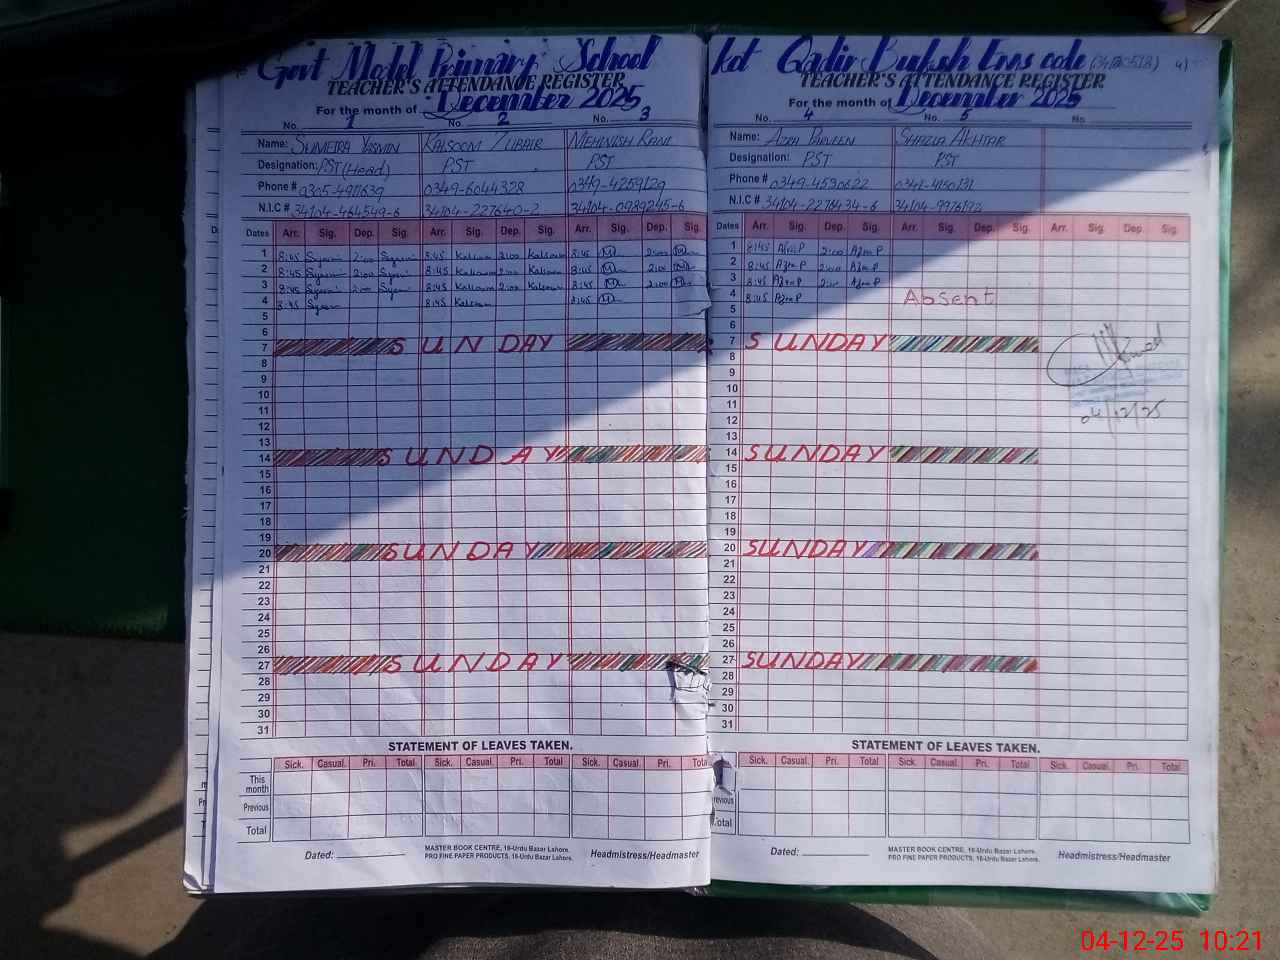 Govt Model Primary School
TEACHER'S ATTENDANCE REGISTER
For the month of December 2025
No. 1 No. 2 No. 3
Name: SUMEIRA YASMIN KALSOOM ZUBAIR MEHWISH RANI
Designation: PST (Head) PST PST
Phone # 0349-6044328 0349-4259129
N.I.C # 34104-464549-6 34104-227640-2 34104-0989245-6
Dates Arr. Sig. Dep. Sig. Arr. Sig. Dep. Sig. Arr. Sig. Dep. Sig.
1 8:45 2:00 8:45 Kalsoom 2:00 Kalsoom 8:45 2:00
2 8:45 2:00 8:45 Kalsoom 2:00 Kalsoom 8:45 2:00
3 8:45 2:00 8:45 Kalsoom 2:00 Kalsoom 8:45 2:00
4 8:45 8:45 Kalsoom 8:45
5
6
7 SUNDAY
8
9
10
11
12
13
14 SUNDAY
15
16
17
18
19
20 SUNDAY
21
22
23
24
25
26
27 SUNDAY
28
29
30
31
STATEMENT OF LEAVES TAKEN.
Sick. Casual. Pri. Total Sick. Casual. Pri. Total Sick. Casual. Pri. Total
This month
Previous
Total
Dated: MASTER BOOK CENTRE, 16-Urdu Bazar Lahore. Headmistress/Headmaster
PRO FINE PAPER PRODUCTS, 16-Urdu Bazar Lahore.
kot Qadir Buksh Emis code
TEACHER'S ATTENDANCE REGISTER
For the month of December 2025
No. 4 No. 5 No.
Name: AZRA PARVEEN SHAZIA AKHTAR
Designation: PST PST
Phone # 0349-4590622 0341-4150131
N.I.C # 34104-2278434-6 34104-9976192
Dates Arr. Sig. Dep. Sig. Arr. Sig. Dep. Sig. Arr. Sig. Dep. Sig.
1 8:45 Azra P 2:00 Azra P
2 8:45 Azra P 2:00 Azra P
3 8:45 Azra P 2:00 Azra P
4 8:45 Azra P Absent
5
6
7 SUNDAY
8
9
10
11
04/12/25
12
13
14 SUNDAY
15
16
17
18
19
20 SUNDAY
21
22
23
24
25
26
27 SUNDAY
28
29
30
31
STATEMENT OF LEAVES TAKEN.
Sick. Casual. Pri. Total Sick. Casual. Pri. Total Sick. Casual. Pri. Total
Dated: MASTER BOOK CENTRE, 16-Urdu Bazar Lahore. Headmistress/Headmaster
PRO FINE PAPER PRODUCTS, 16-Urdu Bazar Lahore.
04-12-25 10:21